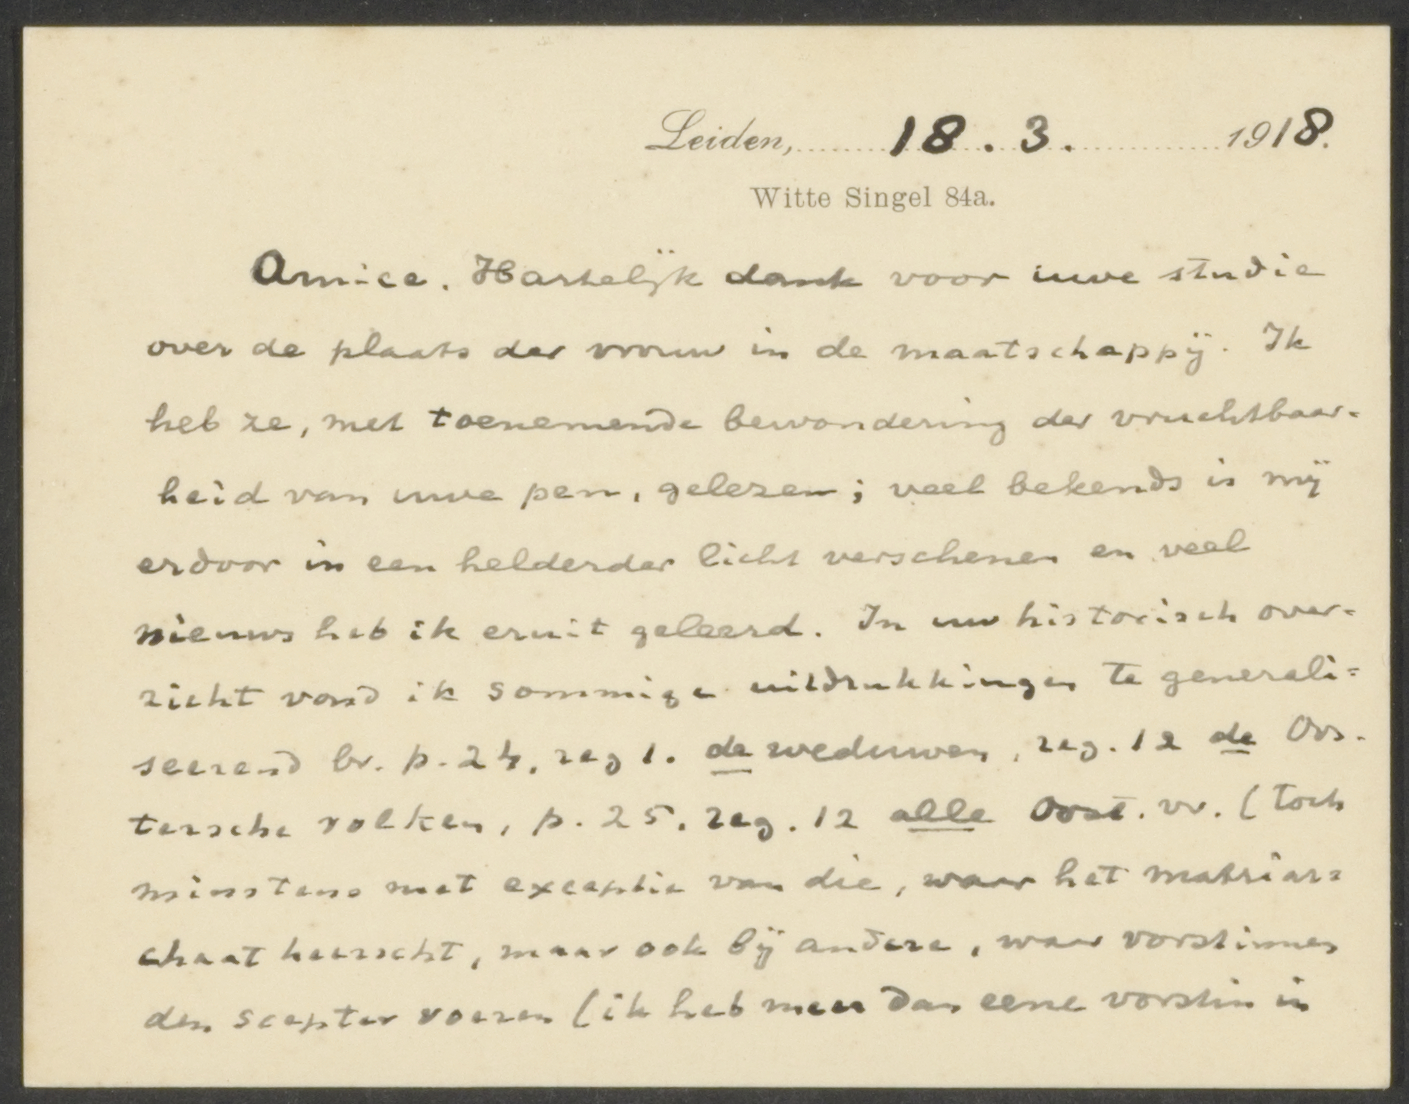 Leiden, 18.3. 1918.
Witte Singel 84a.
Amice. Hartelijk dank voor uwe studie
over de plaats der vrouw in de maatschappij. Ik
heb ze, met toenemende bewondering der vruchtbaar-
heid van uwe pen, gelezen; veel bekends is mij
erdoor in een helderder licht verschenen en veel
nieuws heb ik eruit geleerd. In uw historisch over-
zicht vond ik sommige uitdrukkingen te generali-
seerend bv. p. 24, reg 1. de weduwen, reg. 12 de Oos-
tersche volken, p. 25, reg. 12 alle Oost. vr. (toch
minstens met exceptie van die, waar het matriar-
chaat heerscht, maar ook bij andere, waar vorstinnen
den scepter voeren (ik heb meer dan eene vorstin in